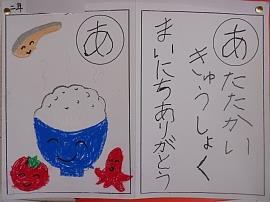 二年
あ
あたたかい
きゅうしょく
まいにちありがとう